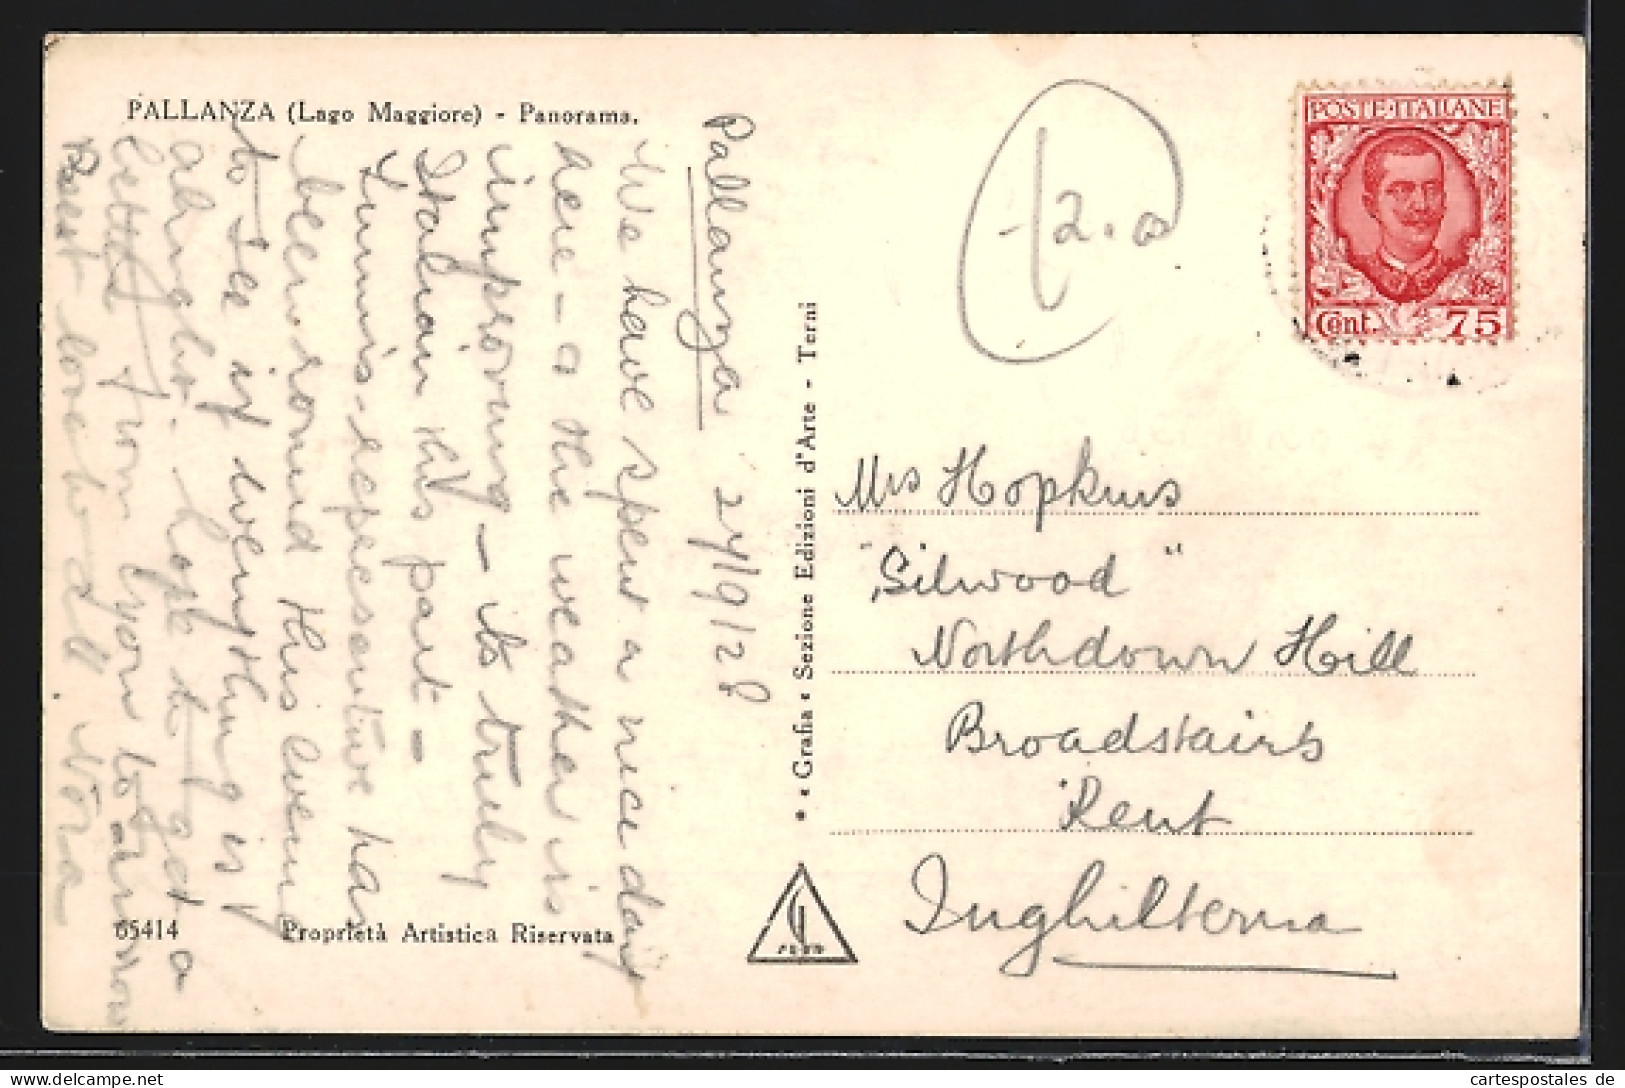 PALLANZA (Lago Maggiore) - Panorama.
Pallanza 24/9/28
We have spent a nice day
here - & the weather is
improving - its truly
Italian this part -
Lunnis representative has
been round this evening
to see if everything is
alright. hope to get a
letter from you tomorrow
Best love to all. Nora
65414
Proprietà Artistica Riservata
• • Grafia • Sezione Edizioni d'Arte - Terni
2.0
POSTE·ITALIANE
Cent. 75
Mrs Hopkins
"Silwood"
Northdown Hill
Broadstairs
Kent
Inghilterra
www.cartespostales.de
cartespostales de